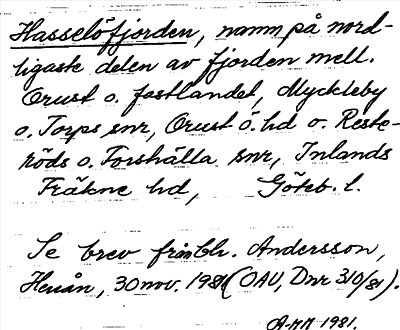 Hasselöfjorden, namn på nord-
ligaste delen av fjorden mell.
Orust o. fastlandet, Myckleby
o. Torps snr, Orust ö. hd o. Reste-
röds o. Forshälla snr, Inlands
Fräkne hd, Göteb. l.
Se brev från Chr. Andersson,
Henån, 30 nov. 1981 (OAU, Dnr 310/81).
A-MH 1981.